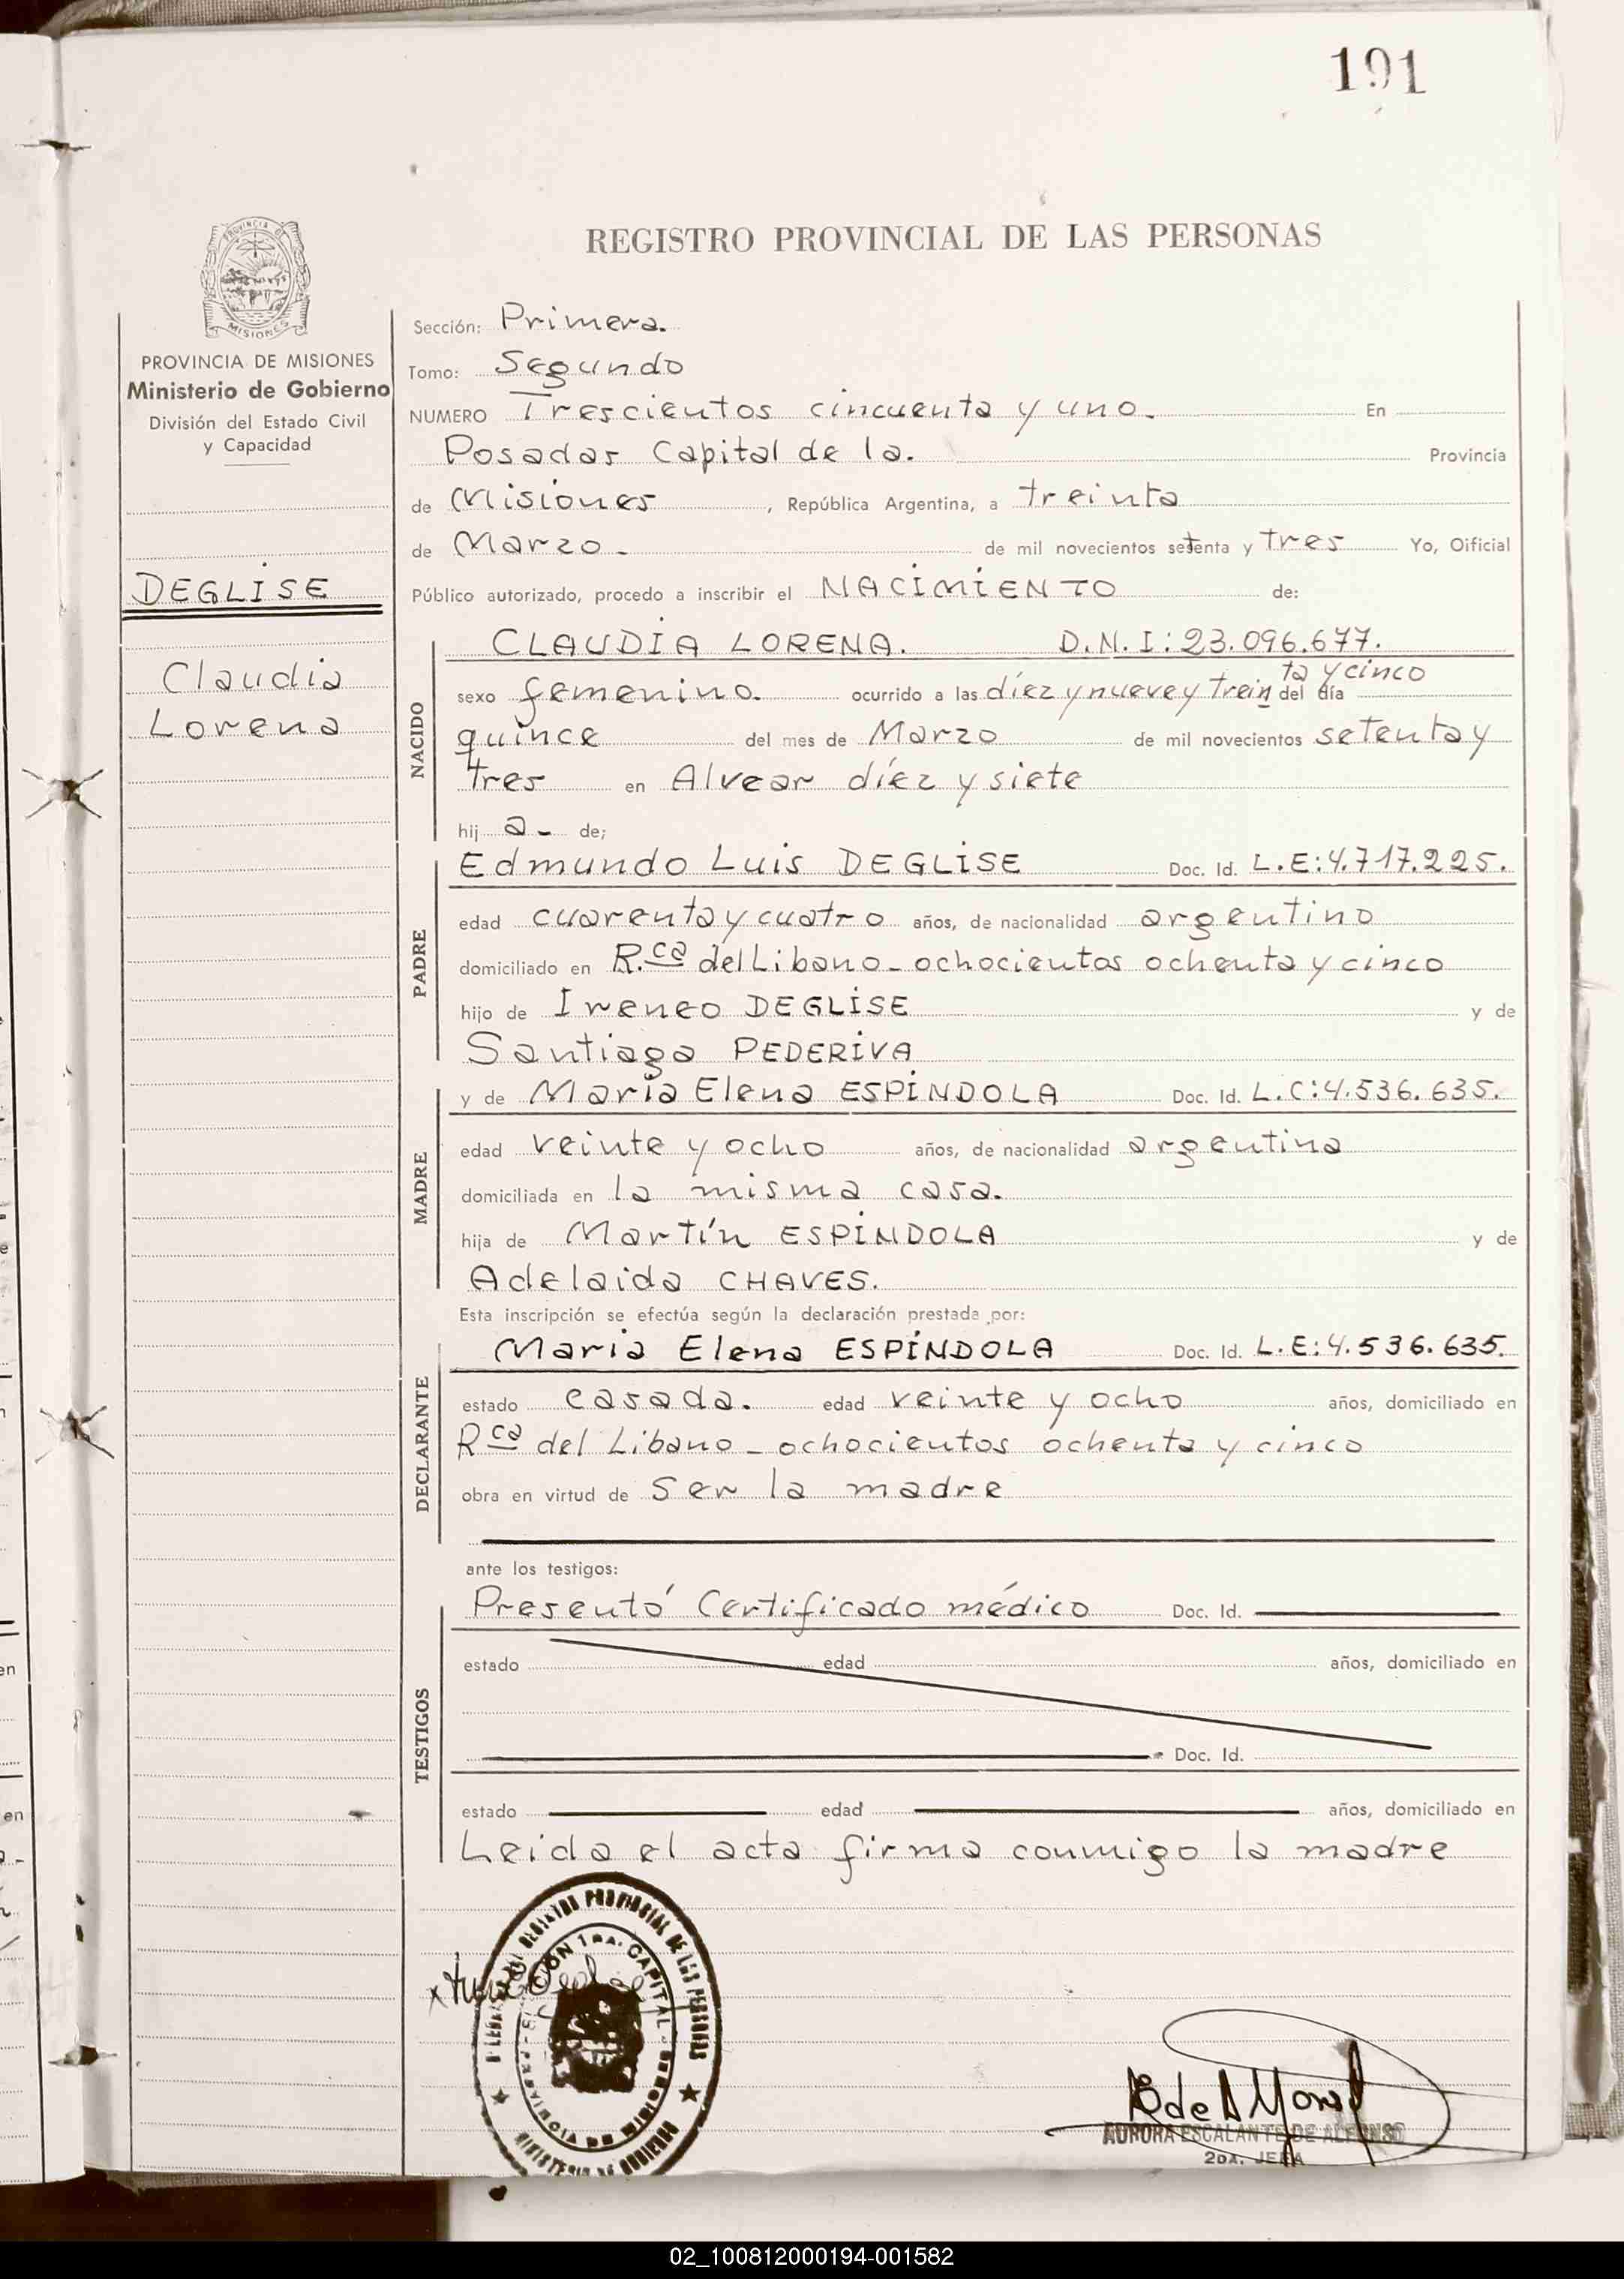 191
REGISTRO PROVINCIAL DE LAS PERSONAS
PROVINCIA DE MISIONES
PROVINCIA DE MISIONES
Ministerio de Gobierno
División del Estado Civil
y Capacidad
DEGLISE
Claudia
Lorena
Sección: Primera.
Tomo: Segundo
NUMERO Trescientos cincuenta y uno. En
Posadas Capital de la. Provincia
de Misiones, República Argentina, a treinta
de Marzo. de mil novecientos setenta y tres Yo, Oificial
Público autorizado, procedo a inscribir el NACIMIENTO de:
NACIDO
CLAUDIA LORENA. D.N.I: 23.096.677.
ta y cinco
sexo femenino. ocurrido a las díez y nueve y trein del día
quince del mes de Marzo de mil novecientos setenta y
tres en Alvear díez y siete
hij a- de;
PADRE
Edmundo Luis DEGLISE Doc. Id. L.E: 4.717.225.
edad cuarenta y cuatro años, de nacionalidad argentino
domiciliado en R.ca del Libano - ochocientos ochenta y cinco
hijo de Ireneo DEGLISE y de
Santiaga PEDERIVA
MADRE
y de María Elena ESPINDOLA Doc. Id. L.C: 4.536.635.
edad veinte y ocho años, de nacionalidad argentina
domiciliada en la misma casa.
hija de Martín ESPINDOLA y de
Adelaida CHAVES.
Esta inscripción se efectúa según la declaración prestada por:
DECLARANTE
Maria Elena ESPINDOLA Doc. Id. L.E: 4.536.635.
estado casada. edad veinte y ocho años, domiciliado en
Rca del Libano - ochocientos ochenta y cinco
obra en virtud de ser la madre
ante los testigos:
TESTIGOS
Presentó Certificado médico Doc. Id.
estado edad años, domiciliado en
Doc. Id.
estado edad años, domiciliado en
Leida el acta firma conmigo la madre
REGISTRO PROVINCIAL DE LAS PERSONAS
1RA. CAPITAL
PROVINCIA DE MISIONES
MINISTERIO DE GOBIERNO
AURORA ESCALANTE DE ALFONSO
2DA. JEFA
02_100812000194-001582